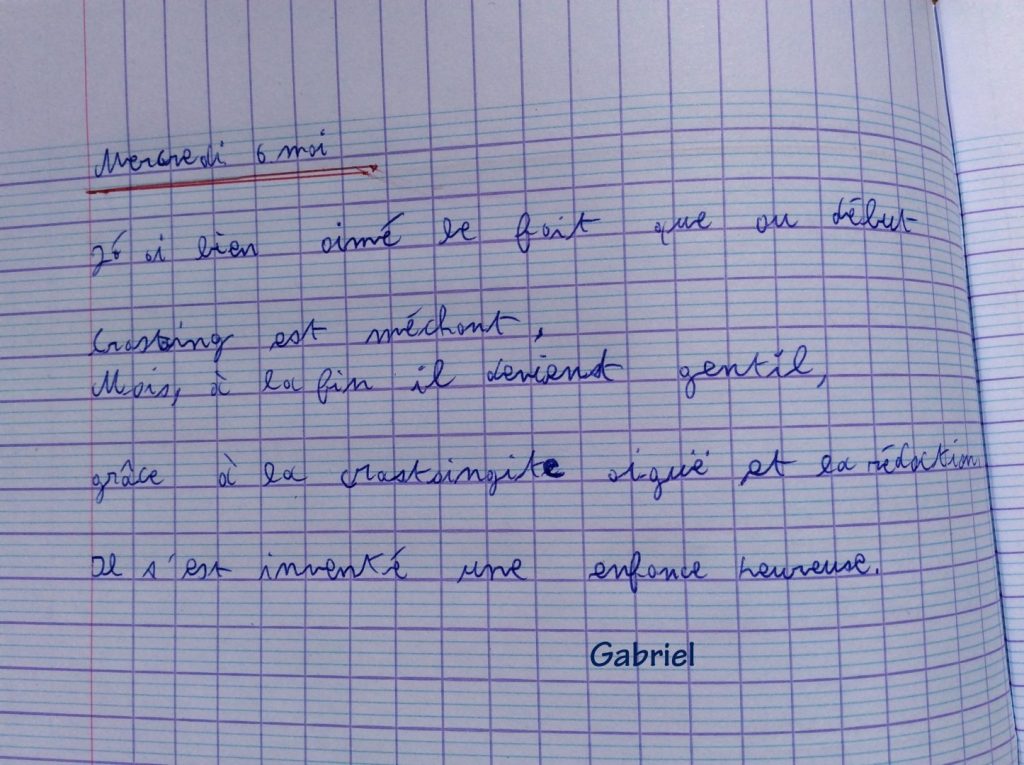 Mercredi 6 mai
J'ai bien aimé le fait que au début
Crastaing est méchant,
Mais, à la fin il devient gentil,
grâce à la crastaingite aiguë et la rédaction
Il s'est inventé une enfance heureuse.
Gabriel